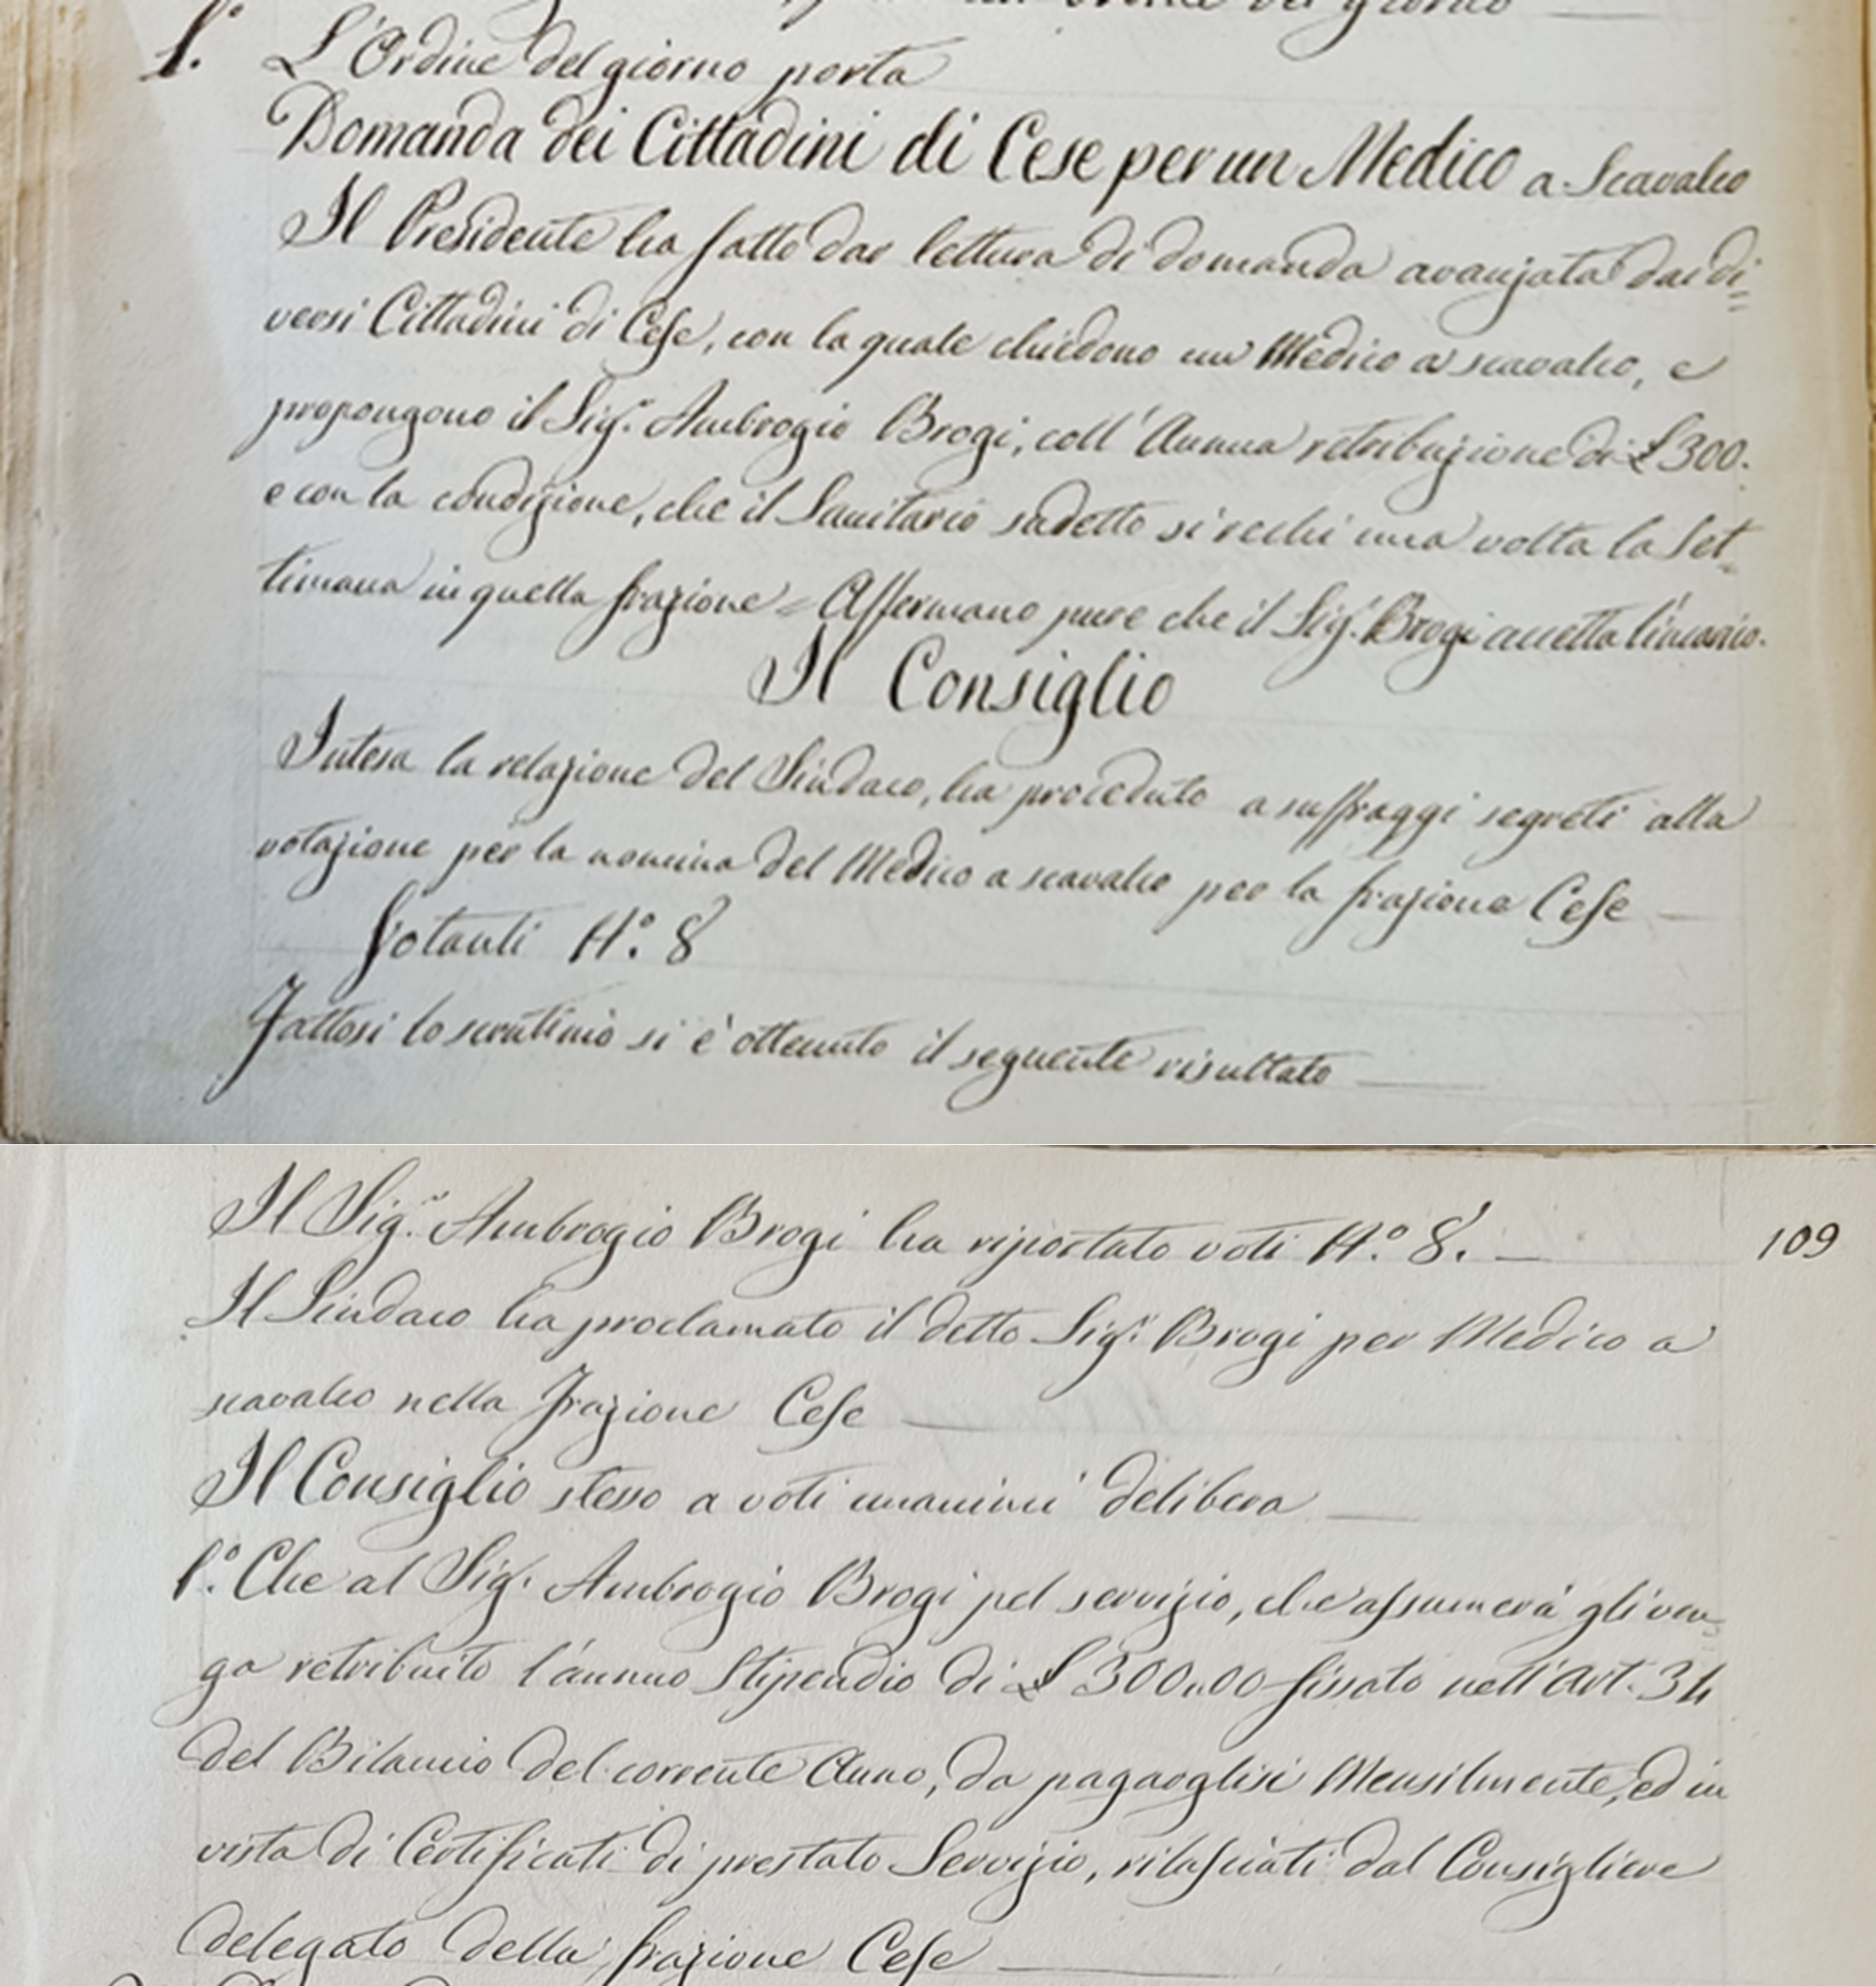 ordine del giorno
1.° L'Ordine del giorno porta
Domanda dei Cittadini di Cese per un Medico a Scavalco
Il Presidente ha fatto dar lettura di domanda avanzata dai di=
versi Cittadini di Cese, con la quale chiedono un Medico a scavalco, e
propongono il Sig.r Ambrogio Brogi, coll'Annua retribuzione di £300.
e con la condizione, che il Sanitario sudetto si rechi una volta la Set=
timana in quella frazione = Affermano pure che il Sig.r Brogi accetta l'incarico.
Il Consiglio
Intesa la relazione del Sindaco, ha proceduto a suffraggi segreti alla
votazione per la nomina del Medico a scavalco per la frazione Cese —
Votanti N.° 8
Fattosi lo scrutinio si è ottenuto il seguente risultato —
Il Sig.r Ambrogio Brogi ha riportato voti N.° 8. —
109
Il Sindaco ha proclamato il detto Sig.r Brogi per Medico a
scavalco nella Frazione Cese —
Il Consiglio stesso a voti unanimi delibera —
1.° Che al Sig.r Ambrogio Brogi pel servizio, che assumerà gli ven=
ga retribuito l'annuo Stipendio di £ 300,00 fissato nell'Art. 34
del Bilancio del corrente Anno, da pagarglisi Mensilmente, ed in
vista di Certificati di prestato Servizio, rilasciati dal Consigliere
delegato della frazione Cese —